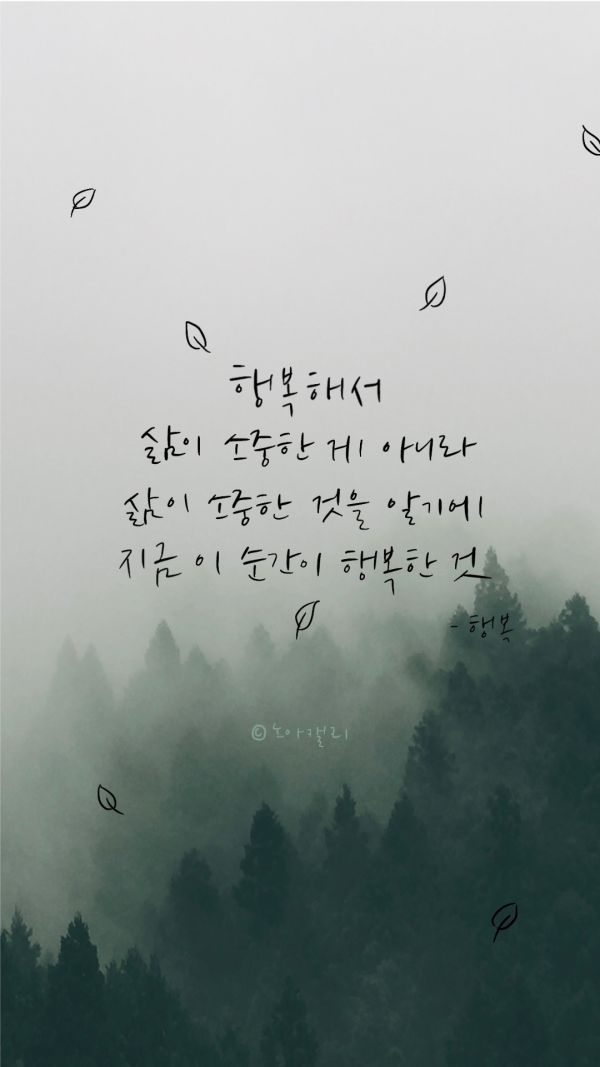 행복해서
삶이 소중한 게 아니라
삶이 소중한 것을 알기에
지금 이 순간이 행복한 것
- 행복
© 노아캘리